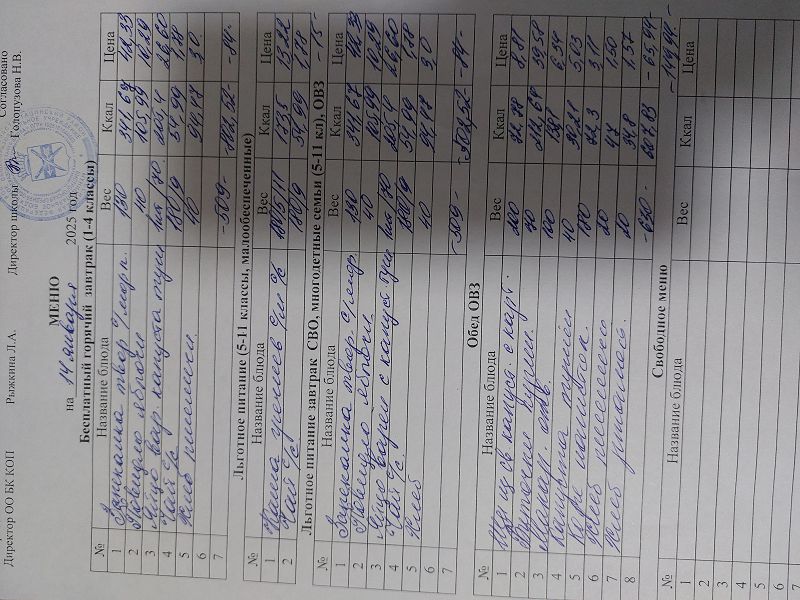 Согласовано
Директор ОО БК КОП Рыжкина Л.А. Директор школы Голопузова Н.В.
МЕНЮ
на 14 января 2025 год
Бесплатный горячий завтрак (1-4 классы)
№ Название блюда Вес Ккал Цена
1 Запеканка твор. с морк. 130 341,67 42,33
2 Повидло яблочн 40 105,99 10,29
3 Яйцо вар. капуста туш 1шт/70 205,4
4 Чай с/с 180/9 54,99 1,78
5 Хлеб пшеничн. 40 94,47 3.0
6
7 -509- -802,52- -84-
Льготное питание (5-11 классы, малообеспеченные)
№ Название блюда Вес Ккал Цена
1 Каша 13,22
2 Чай с/с 180/9 54,99 1,78
-15-
Льготное питание завтрак СВО, многодетные семьи (5-11 кл), ОВЗ
№ Название блюда Вес Ккал Цена
1 Запеканка твор. с морк. 130 341,67 42,33
2 Повидло яблочн. 40 105,99 10,29
3 Яйцо варен с капуст туш 1шт/70 205,4
4 Чай с/с. 180/9 54,99 1,78
5 Хлеб 40 94,47 3.0
6
7 -509- -802,52- -84-
Обед ОВЗ
№ Название блюда Вес Ккал Цена
1 Щи из св капусты с карт. 200 8,81
2 куриц. 212,67 39,58
3 Макар. отв. 100 138 6,34
4 Капуста тушен 40 5,03
5 180 3,11
6 Хлеб пшеничн 20 47 1,50
7 Хлеб ржаной 20 34,8 1,57
8 -630- -65,94-
-149,94-
Свободное меню
№ Название блюда Вес Ккал Цена
1
2
3
4
5
6
7